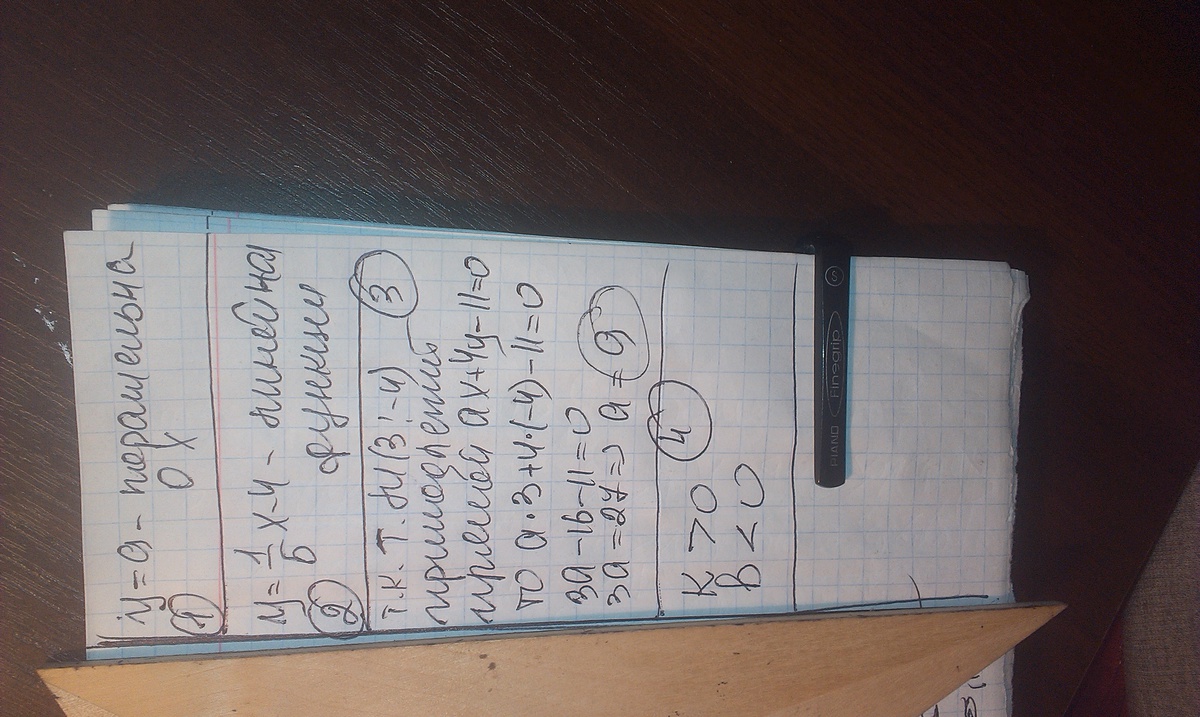 y = 9 - паралельна
① 0x
y = 1/5 x - 4 - линейная
② функция
т.к. т. М(3; -4) ③
принадлежит
прямой ax + 4y - 11 = 0
то a · 3 + 4 · (-4) - 11 = 0
3a - 16 - 11 = 0
3a = 27 => a = 9
④
K > 0
B < 0
PIANO Finegrip S